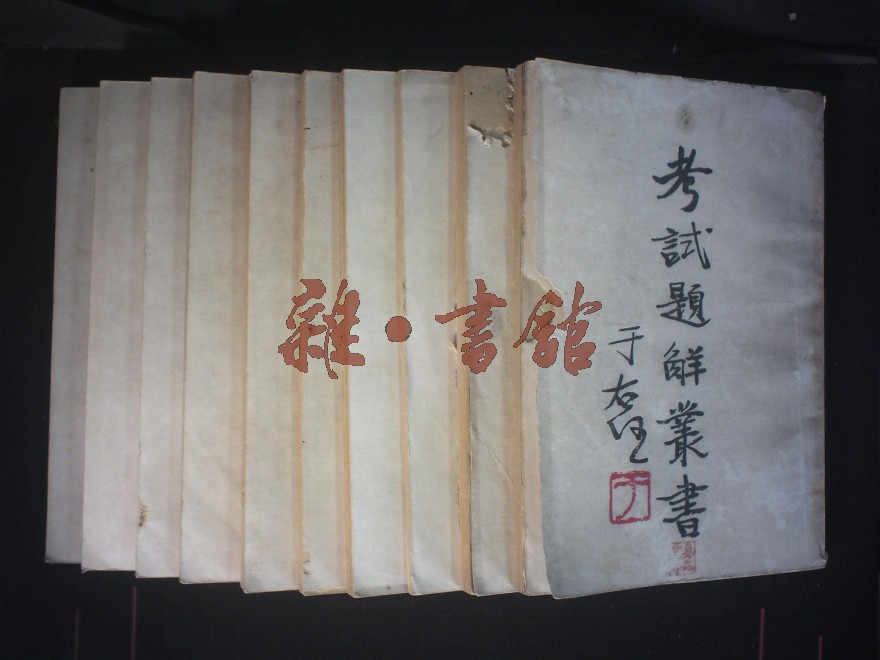 考試題解叢書
于右任
雜·書館